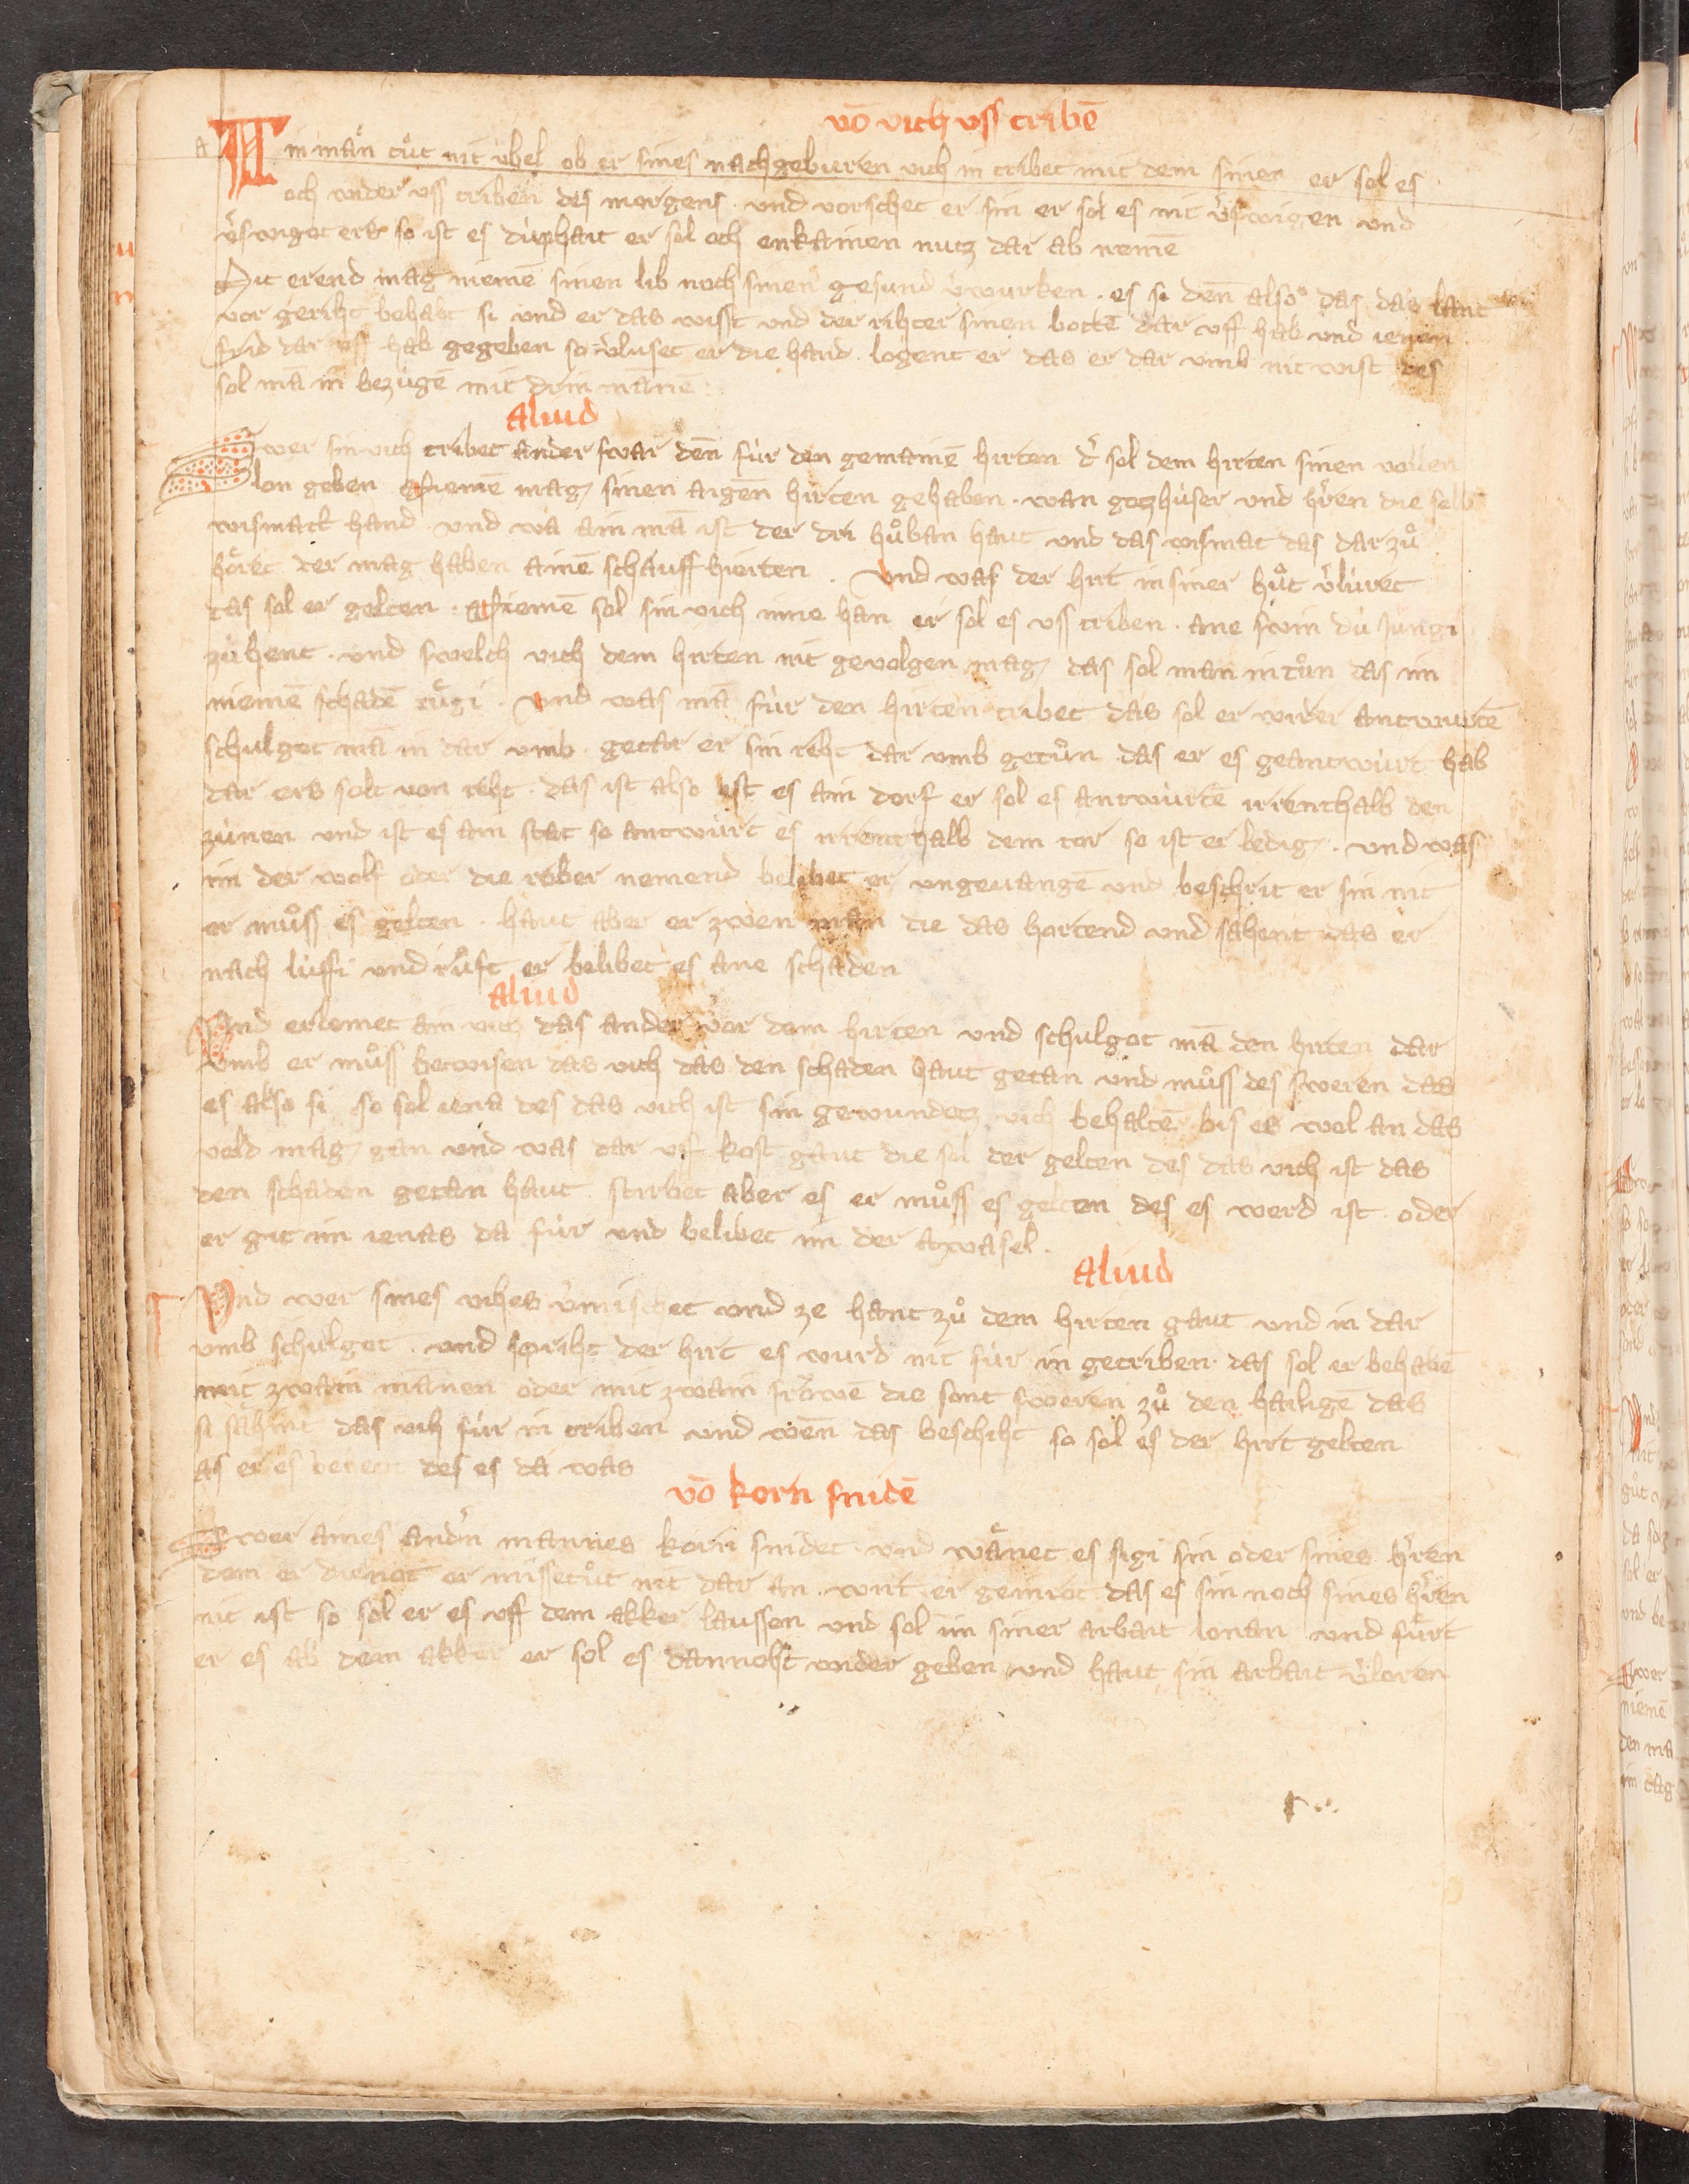 vō vich vss tribē
Ain man tuͦt nit vbel ob er sines nachgeburen vich in tribet mit dem sinen er sol es
och wider vss triben des morgens · vnd vorschet er sin er sol es nit v̉swigen vnd
v̉swigot ers so ist es duͥphait er sol och enkainen nutz dar ab nemē
Mit erend mag niemē sinen lib noch sinen gesund v̉wurken · es si den̄ also das das lant
vor geriht behabt si vnd er das wisst vnd der rihter sinen bottē dar vff hab vnd ienen
frid dar vff hab gegeben so v̉luset er die hand · logent er das er dar vmb nit wist des
sol mā in bezugē mit drin mānē
Aliud
Swer sin vich tribet anderswar den̄ fuͥr den gemainē hirten d̉ sol dem hirten sinen vollen
lon geben Niemē mag sinen aigen̄ hirten gehaben · wan gotzhuͥser vnd h̉ren die selb
wismatt hand · vnd wa ain mā ist der dri huͦban haut vnd das wismat das dar zuͦ
hoͤret der mag haben ainē schauff hirten · Vnd was der hirt in siner huͦt v̉luͥret
das sol er gelten · Niemē sol sin vich inne han er sol es vss triben · ane swin duͥ jungi
zuͥhent · vnd swelch vich dem hirten nit gevolgen mag das sol man in tuͦn das im
niemē schadē tuͤgi · Vnd was mā fuͥr den hirten tribet das sol er wider antwurtē
schulgot mā in dar vmb · getar er sin reht dar vmb getuͦn das er es geantwuͥrt hab
dar ers solt von reht · das ist also ist es ain dorf er sol es antwuͥrtē innenthalb den
zuͥnen vnd ist es ain stat so antwuͥrt es innenthalb dem tor so ist er ledig · vnd was
im der wolf oder die rober nemend belibet er vngeuangē vnd beschrit er sin nit
er muͦss es gelten · haut aber er zwen man die das hortend vnd sahent das er
nach luͥffi vnd ruͦft er belibet es ane schaden
Aliud
Vnd erlemet ain vich das ander vor dem hirten vnd schulgot mā den hirten dar
vmb er muͦss bewisen das vich das den schaden haut getan vnd muͦss des sweren das
es also si so sol iena des das vich ist sin gewundetz vich behaltē bis es wol an das
veld mag gan vnd was dar vff kost gaut die sol der gelten des das vich ist das
den schaden getan haut · stirbet aber es er muͦss es gelten des es werd ist · oder
er git im ienas da fuͥr vnd belibet im der awasel ·
Aliud
Vnd wer sines vihes v̉mischet vnd ze hant zuͦ dem hirten gaut vnd in dar
vmb schulgot · vnd spriht der hirt es wurd nit fuͥr in getriben das sol er behabē
mit zwain mānen oder mit zwain frowē die sont sweren zuͦ den hailigē das
si sahint das vih fuͥr in triben vnd wen̄ das beschiht so sol es der hirt gelten
as er es des es da was
vō korn snidē
Swer aines and̉n mannes korn snidet vnd waͤnet es sigi sin oder sines h̉ren
dem er dienot er missetuͦt nit dar an · wirt er gewar das es sin noch sines h̉ren
nit ist so sol er es vff dem akker laussen vnd sol im siner arbait lonan vnd fuͤrt
er es ab dem akker er sol es dannoht wider geben vnd haut sin arbait v̉loren